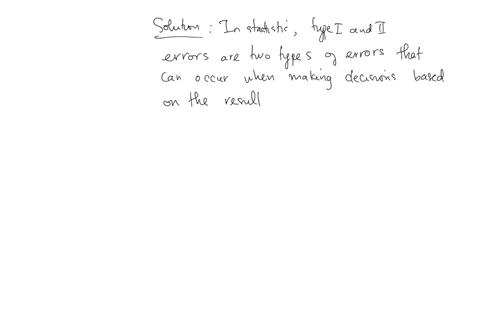 Solution : In statistic, type I and II
errors are two types of errors that
can occur when making decisions based
on the result